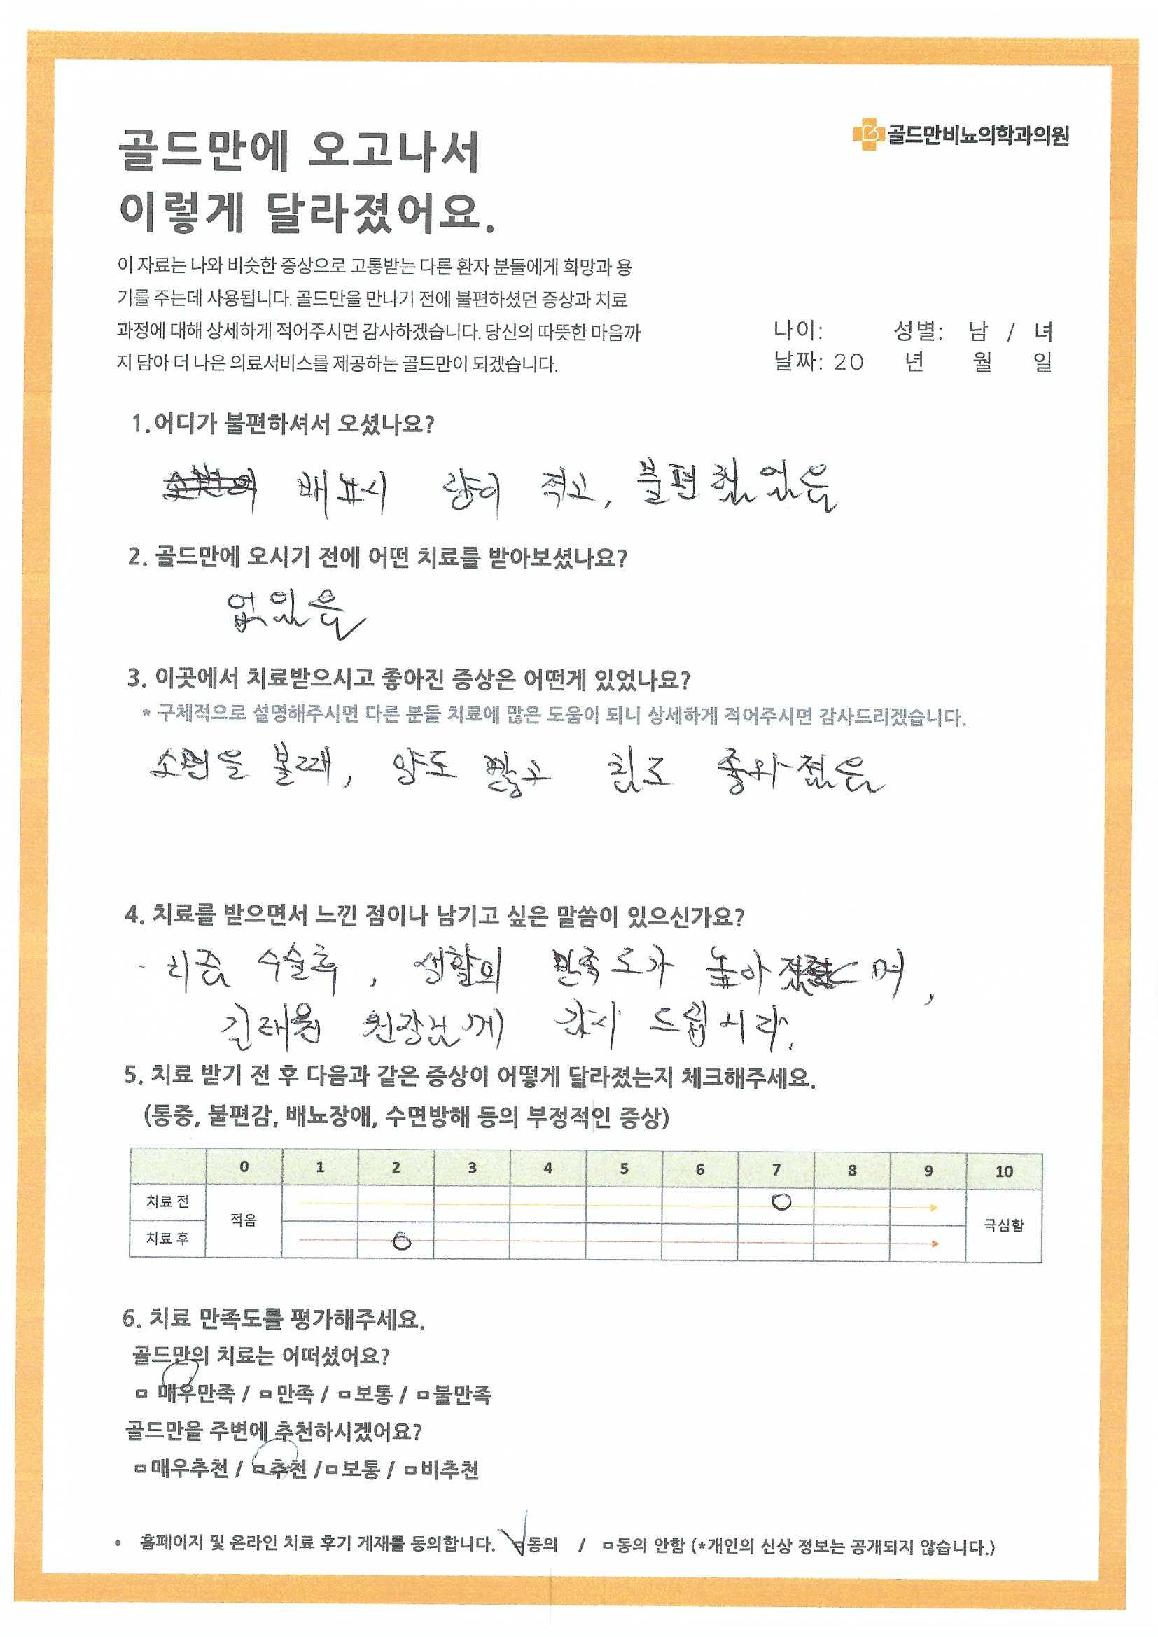 골드만비뇨의학과의원
골드만에 오고나서
이렇게 달라졌어요.
이 자료는 나와 비슷한 증상으로 고통받는 다른 환자 분들에게 희망과 용
기를 주는데 사용됩니다. 골드만을 만나기 전에 불편하셨던 증상과 치료
과정에 대해 상세하게 적어주시면 감사하겠습니다. 당신의 따뜻한 마음까
지 담아 더 나은 의료서비스를 제공하는 골드만이 되겠습니다.
나이: 성별: 남 / 녀
날짜: 20 년 월 일
1.어디가 불편하셔서 오셨나요?
배뇨시 량이 적고, 불편 했었음
2. 골드만에 오시기 전에 어떤 치료를 받아보셨나요?
없었음
3. 이곳에서 치료받으시고 좋아진 증상은 어떤게 있었나요?
* 구체적으로 설명해주시면 다른 분들 치료에 많은 도움이 되니 상세하게 적어주시면 감사드리겠습니다.
소변을 볼때, 양도 많고 힘도 좋와졌음
4. 치료를 받으면서 느낀 점이나 남기고 싶은 말씀이 있으신가요?
- 리줌 수술후, 생활의 만족도가 높아 며,
김태원 원장님께 감사 드립시다.
5. 치료 받기 전 후 다음과 같은 증상이 어떻게 달라졌는지 체크해주세요.
(통증, 불편감, 배뇨장애, 수면방해 등의 부정적인 증상)
0 1 2 3 4 5 6 7 8 9 10
치료 전
적음 극심함
치료 후
6. 치료 만족도를 평가해주세요.
골드만의 치료는 어떠셨어요?
□ 매우만족 / □ 만족 / □ 보통 / □ 불만족
골드만을 주변에 추천하시겠어요?
□ 매우추천 / □ 추천 / □ 보통 / □ 비추천
• 홈페이지 및 온라인 치료 후기 게재를 동의합니다. ☑동의 / □동의 안함 (*개인의 신상 정보는 공개되지 않습니다.)